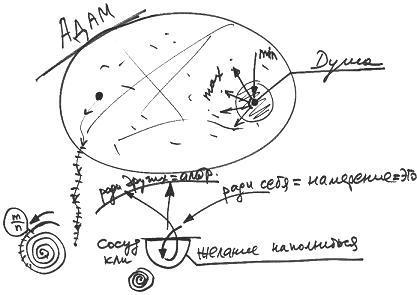 АДАМ
min
max
Душа
ради других = альтр.
ради себя = намерение = эго
m/n
сосуд
кли
желание наполниться